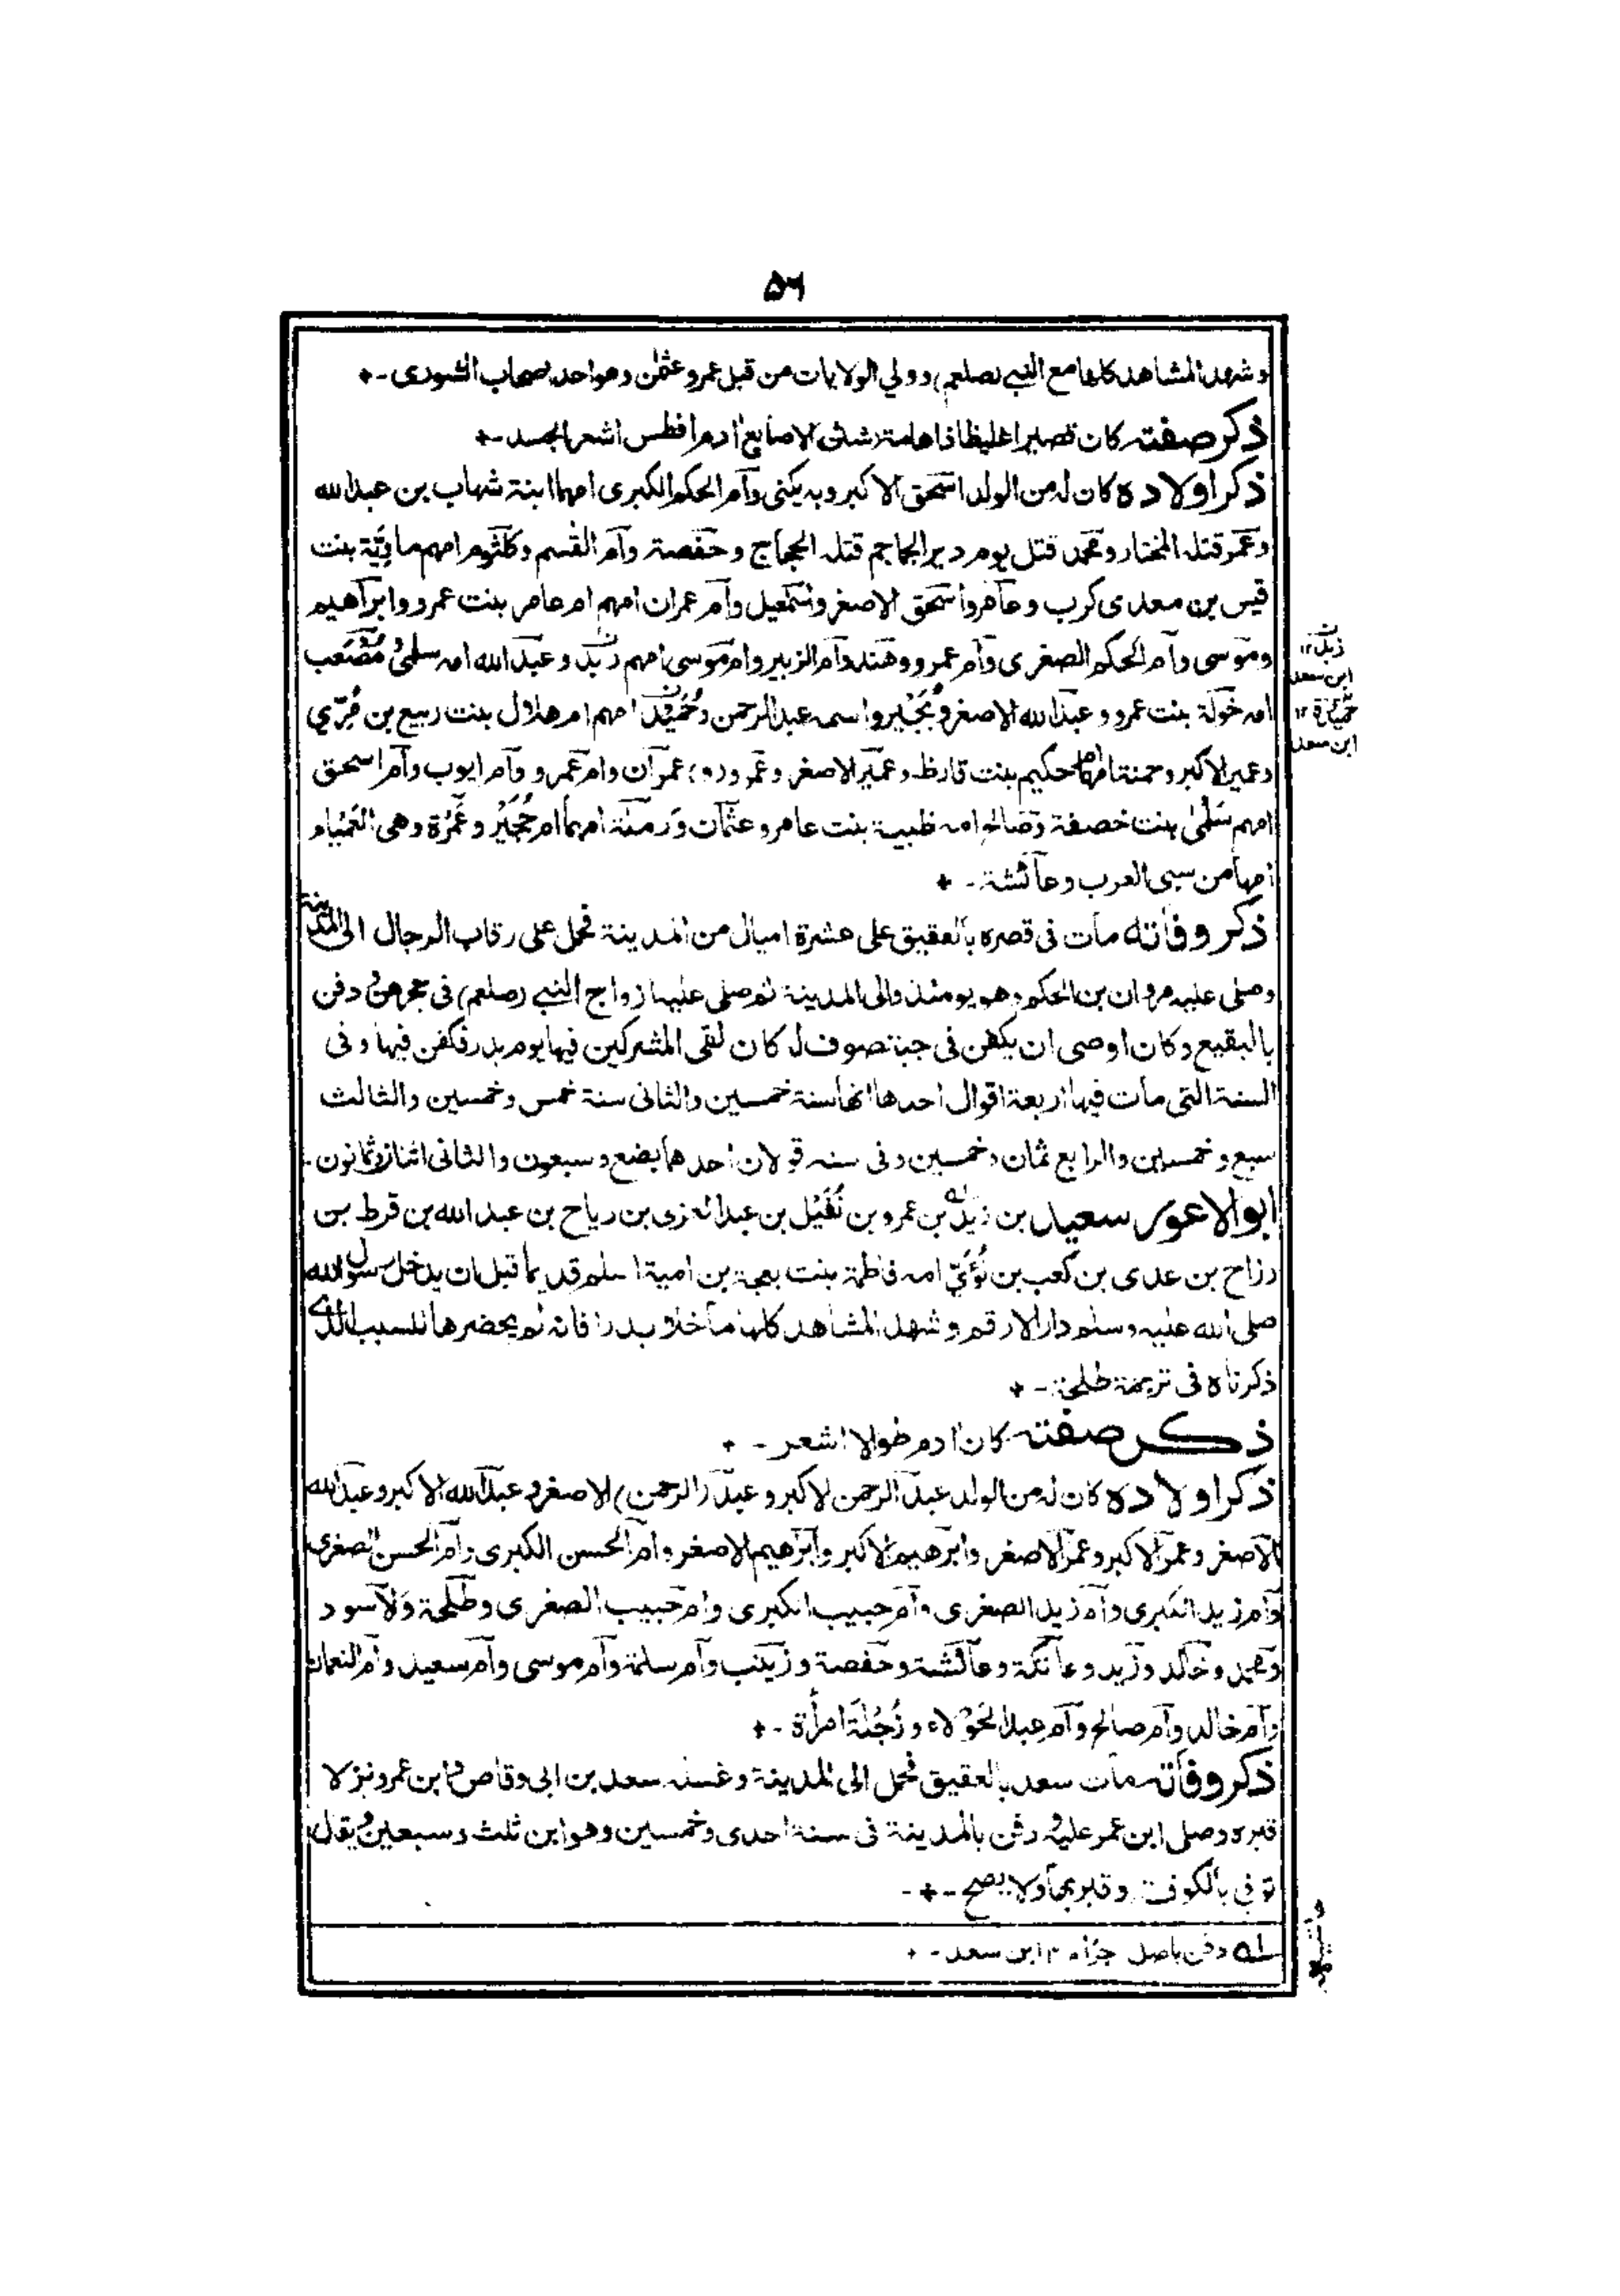 ۵۶
وشهد المشاهد كلها مع النبي (صلعم) وولي الولايات من قبل عمرو عثمٰن وهواحد اصحاب الشورى -
ذكر صفته كان قصيرا غليظا ذا هامة شثن الاصابع ادم افطس اشعر الجسد -
ذكر اولاده كان له من الولد اسحٰق الاكبر وبه يكنى وام الحكم الكبرى امهما ابنة شهاب بن عبدالله
وعمر قتله المختار ومحمد قتل يوم دير الجماجم قتله الحجاج وحفصة وام القسم وكلثوم امهم ماوية بنت
قيس بن معدى كرب وعامر واسحٰق الاصغر واسمٰعيل وام عمران امهم ام عامر بنت عمرو وابراهيم
وموسى وام الحكم الصغرى وام عمرو وهند وام الزبير وام موسى امهم زبد وعبد الله امه سلمىٰ ومصعب
امه خولة بنت عمرو وعبد الله الاصغر وبُجَيْر واسمه عبد الرحمن وحُمَيْدة امهم ام هلال بنت ربيع بن مُرّي
وعمير الاكبر وحمنة امهما ام حكيم بنت قارظ وعمير الاصغر وعمرو (و) عمران وام عمرو وام ايوب وام اسحٰق
امهم سَلْمىٰ بنت خصفة وصالح امه ظبية بنت عامر وعثمان ورملة امهما ام حُجَيْر وعَمْرة وهى العمياء
امها من سبى العرب وعائشة -
ذكر وفاته مات فى قصره بالعقيق على عشرة اميال من المدينة فحمل على رقاب الرجال الى المدينة
وصلى عليه مروان بن الحكم وهو يومئذ والى المدينة ثم صلى عليه ازواج النبي (صلعم) فى حجرهن ودفن
بالبقيع وكان اوصى ان يكفن فى جبة صوف له كان لقى المشركين فيها يوم بدر فكفن فيها وفى
السنة التى مات فيها اربعة اقوال احدها انها سنة خمسين والثانى سنة خمس وخمسين والثالث
سبع وخمسين والرابع ثمان وخمسين وفى سنه قولان احدهما بضع وسبعون والثانى اثنان وثمانون
ابو الاعور سعيد بن زيد بن عمرو بن نُفَيْل بن عبد العزى بن رياح بن عبد الله بن قرط بن
رزاح بن عدى بن كعب بن لُؤَيّ امه فاطمة بنت بعجة بن امية اسلم قديما قبل ان يدخل رسول الله
صلى الله عليه وسلم دار الارقم وشهد المشاهد كلها ما خلا بدرا فانه لم يحضرها للسبب الذى
ذكرناه فى ترجمة طلحة -
ذكر صفته كان ادم طوالا اشعر -
ذكر اولاده كان له من الولد عبد الرحمن الاكبر وعبد (الرحمن) الاصغر وعبد الله الاكبر وعبد الله
الاصغر وعمر الاكبر وعمر الاصغر وابرهيم الاكبر وابرهيم الاصغر وام الحسن الكبرى وام الحسن الصغرى
وام زيد الكبرى وام زيد الصغرى وام حبيب الكبرى وام حبيب الصغرى وطلحة والاسود
ومحمد وخالد وزيد وعاتكة وعائشة وحفصة وزينب وام سلمة وام موسى وام سعيد وام النعمان
وام خالد وام صالح وام عبد الحَوْلاء وزُجْلَة امرأة -
ذكر وفاته مات سعيد بالعقيق فحمل الى المدينة وغسله سعد بن ابى وقاص وابن عمر ونزلا
قبره وصلى ابن عمر عليه ودفن بالمدينة فى سنة احدى وخمسين وهو ابن ثلث وسبعين ويقال
توفى بالكوفة وقبر بها ولا يصح -
دفن باصل ابن سعد -
زبد ١٢
ابن سعد
حميدة ١٢
ابن سعد
حاشيه